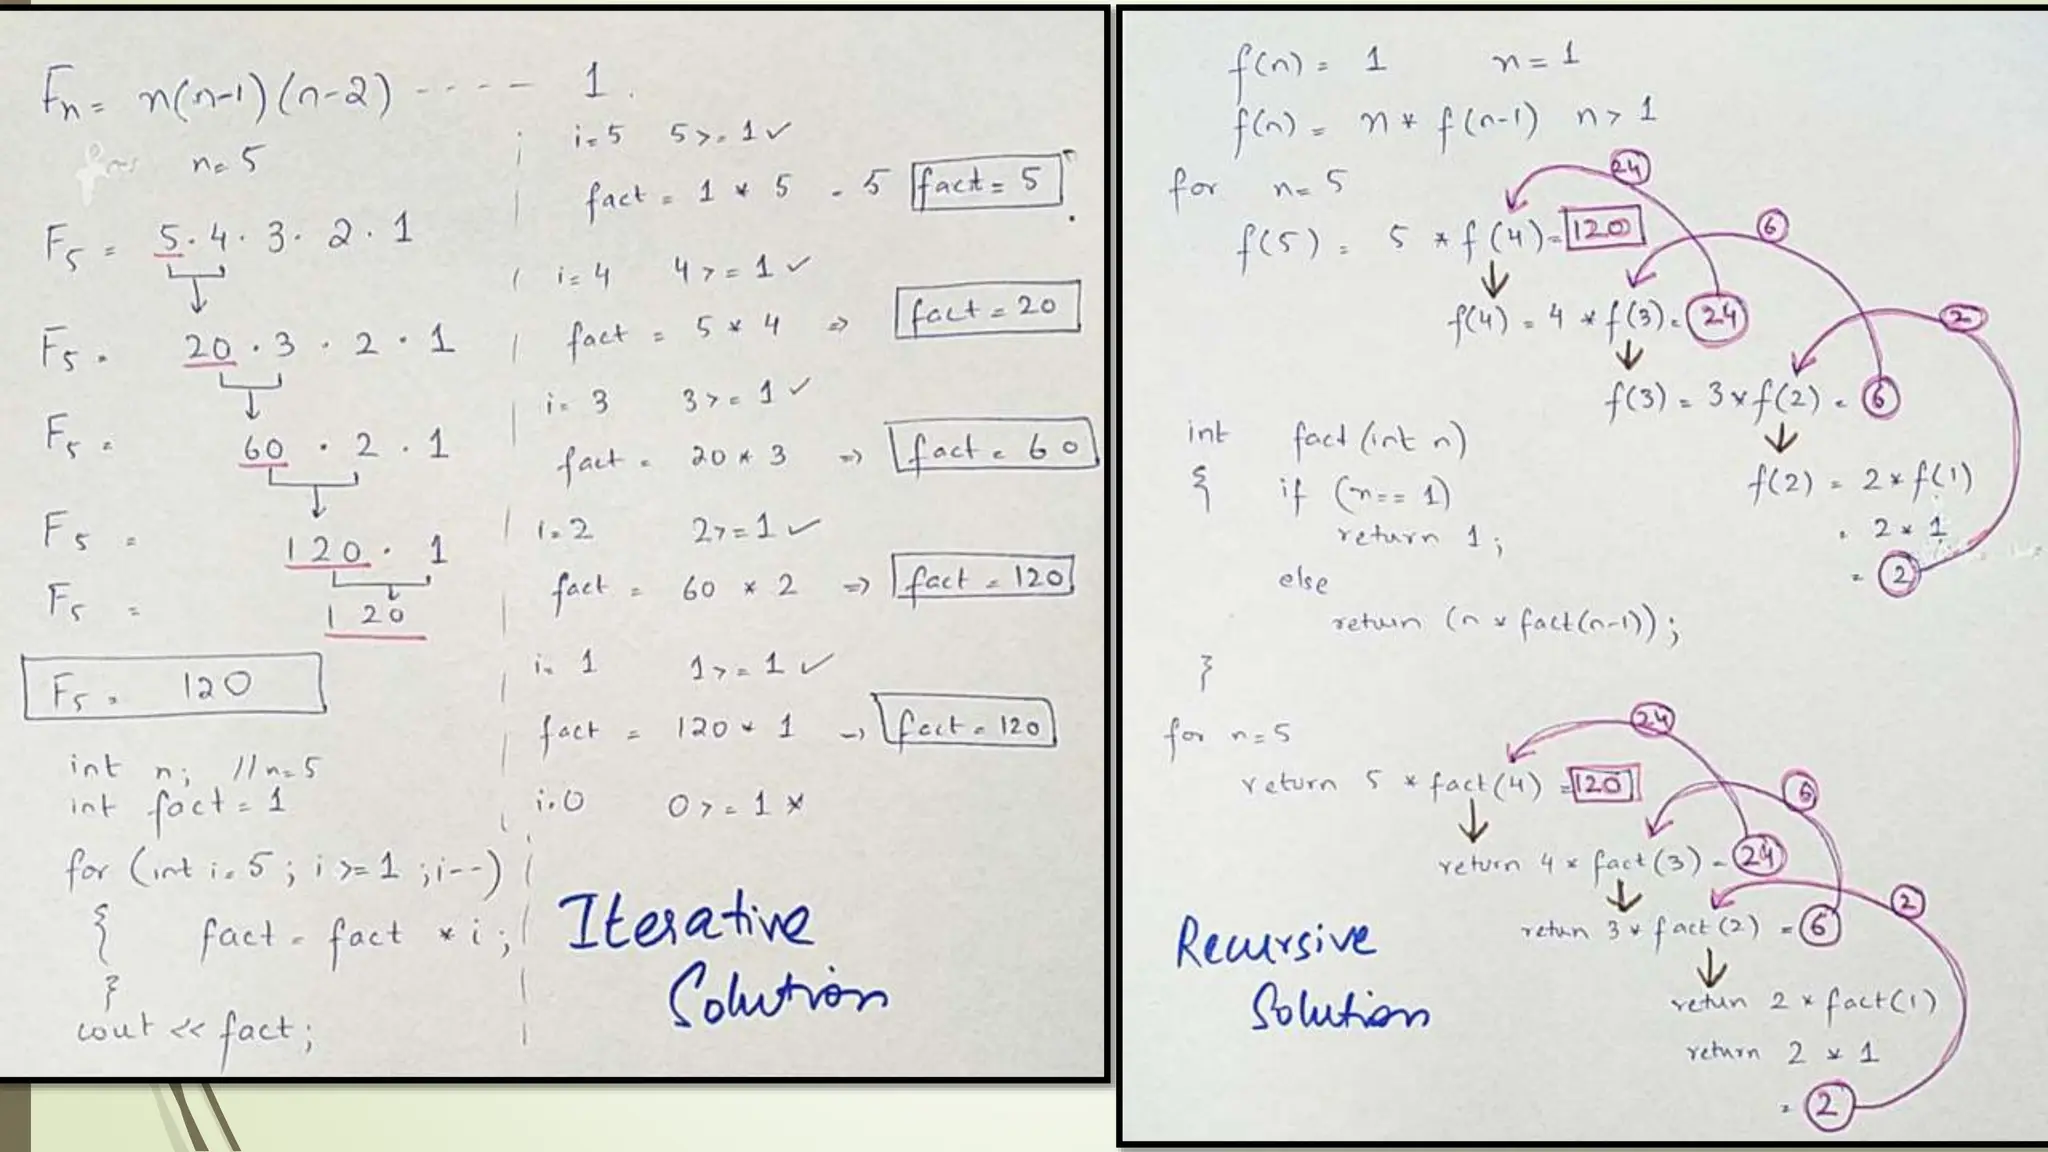 Fn = n(n-1)(n-2) ---- 1.
n=5
F5 = 5.4.3.2.1
F5 = 20.3.2.1
F5 = 60.2.1
F5 = 120.1
F5 = 120
F5 = 120
int n; //n=5
int fact = 1
for (int i=5; i>=1; i--)
{ fact = fact * i;
}
cout << fact;
i=5 5>=1 ✓
fact = 1 * 5 = 5 fact = 5
i=4 4>=1 ✓
fact = 5 * 4 => fact = 20
i=3 3>=1 ✓
fact = 20 * 3 => fact = 60
i=2 2>=1 ✓
fact = 60 * 2 => fact = 120
i=1 1>=1 ✓
fact = 120 * 1 → fact = 120
i=0 0>=1 ×
Iterative
Solution
f(n) = 1 n=1
f(n) = n * f(n-1) n>1
24
for n=5
6
f(5) = 5 * f(4) = 120
f(4) = 4 * f(3) = 24
2
f(3) = 3 * f(2) = 6
f(2) = 2 * f(1)
= 2 * 1
= 2
int fact (int n)
{ if (n == 1)
return 1;
else
return (n * fact(n-1));
}
24
for n=5
return 5 * fact(4) = 120
6
return 4 * fact(3) = 24
2
retun 3 * fact(2) = 6
retun 2 * fact(1)
return 2 * 1
= 2
Recursive
Solution